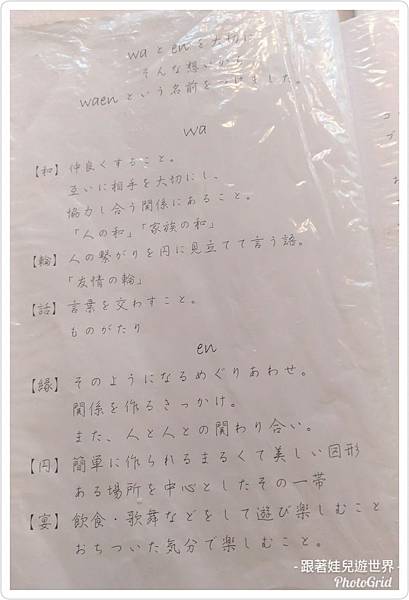 waとenを大切に
そんな想いから
waenという名前をつけました。
wa
【和】仲良くすること。
互いに相手を大切にし、
協力し合う関係にあること。
「人の和」「家族の和」
【輪】人の繋がりを円に見立てて言う語。
「友情の輪」
【話】言葉を交わすこと。
ものがたり
en
【縁】そのようになるめぐりあわせ。
関係を作るきっかけ。
また、人と人との関わり合い。
【円】簡単に作られるまるくて美しい図形
ある場所を中心としたその一帯
【宴】飲食・歌舞などをして遊び楽しむこと
おちついた気分で楽しむこと。
-跟著娃兒遊世界-
PhotoGrid